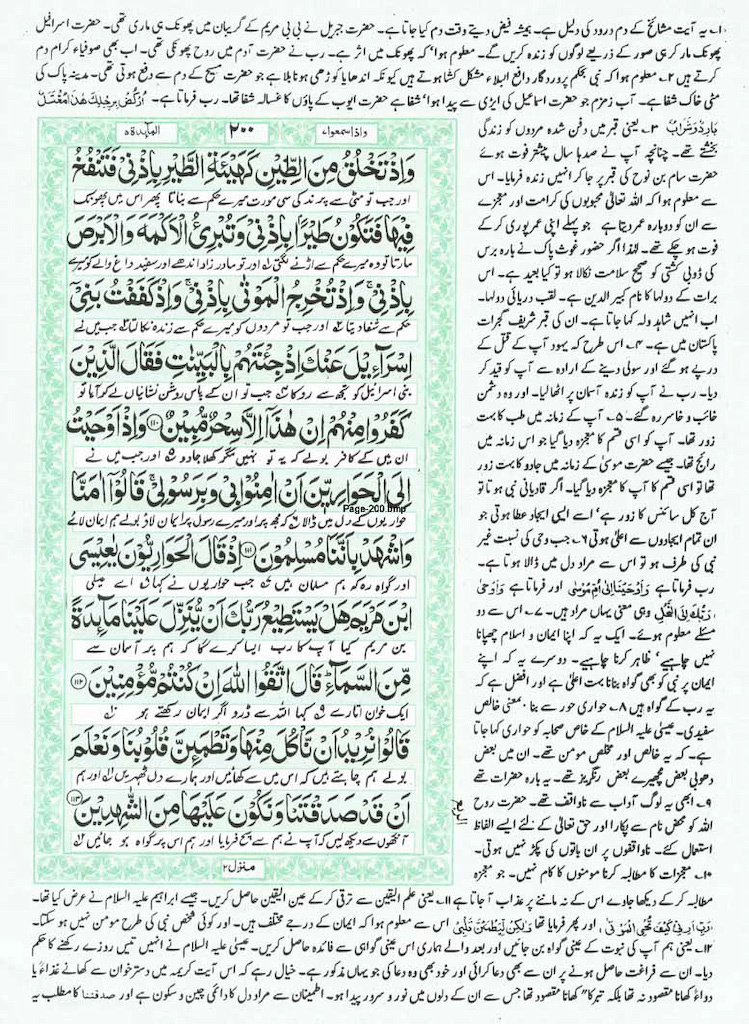 ۱۔ یہ آیت مشائخ کے دم درود کی دلیل ہے۔ ہمیشہ فیض دیتے وقت دم کیا جاتا ہے۔ حضرت جبریل نے بی بی مریم کے گریبان میں پھونک ہی ماری تھی۔ حضرت اسرافیل
پھونک مار کر ہی صور کے ذریعے لوگوں کو زندہ کریں گے۔ معلوم ہوا' کہ پھونک میں اثر ہے۔ رب نے حضرت آدم میں روح پھونکی تھی۔ اب بھی صوفیاء کرام دم
کرتے ہیں ۲۔ معلوم ہوا کہ نبی بحکم پروردگار دافع البلاء مشکل کشا ہوتے ہیں کیونکہ اندھا یا کوڑھی ہونا بلا ہے جو حضرت مسیح کے دم سے دفع ہوتی تھی۔ مدینہ پاک کی
مٹی خاک شفا ہے۔ آب زمزم جو حضرت اسماعیل کی ایڑی سے پیدا ہوا' شفا ہے حضرت ایوب کے پاؤں کا غسالہ شفا تھا۔ رب فرماتا ہے۔ اُرْكُضْ بِرِجْلِكَ هٰذَا مُغْتَسَلٌ
بَارِدٌ وَّشَرَابٌ ۳۔ یعنی قبر میں دفن شدہ مردوں کو زندگی
بخشتے تھے۔ چنانچہ آپ نے صدہا سال پیشتر فوت ہوئے
حضرت سام بن نوح کی قبر پر جا کر انہیں زندہ فرمایا۔ اس
سے معلوم ہوا کہ اللہ تعالیٰ محبوبوں کی کرامت اور معجزے
سے ان کو دوبارہ عمر دیتا ہے جو پہلے اپنی عمر پوری کر کے
فوت ہو چکے تھے۔ لہذا اگر حضور غوث پاک نے بارہ برس
کی ڈوبی کشتی کو صحیح سلامت نکالا ہو تو کیا بعید ہے۔ اس
برات کے دولہا کا نام کبیر الدین ہے۔ لقب دریائی دولہا۔
اب انہیں شاہد ولہ کہا جاتا ہے۔ ان کی قبر شریف گجرات
پاکستان میں ہے۔ ۴۔ اس طرح کہ یہود آپ کے قتل کے
درپے ہو گئے اور سولی دینے کے ارادہ سے آپ کو قید کر
دیا۔ رب نے آپ کو زندہ آسمان پر اٹھا لیا۔ اور وہ دشمن
خائب و خاسر رہ گئے۔ ۵۔ آپ کے زمانہ میں طب کا بہت
زور تھا۔ آپ کو اسی قسم کا معجزہ دیا گیا جو اس زمانہ میں
رائج تھا۔ جیسے حضرت موسیٰ کے زمانہ میں جادو کا بہت زور
تھا تو اسی قسم کا آپ کا معجزہ دیا گیا۔ اگر قادیانی نبی ہوتا تو
آج کل سائنس کا زور ہے' اسے ایسی ایجاد عطا ہوتی جو
ان تمام ایجادوں سے اعلیٰ ہوتی ۶۔ جب وحی کی نسبت غیر
نبی کی طرف ہو تو اس سے مراد دل میں ڈالنا ہوتا ہے۔
رب فرماتا ہے وَاَوْحَيْنَا اِلٰى اُمِّ مُوْسٰى اور فرماتا ہے وَاَوْحٰى
رَبُّكَ اِلَى النَّحْلِ وہی معنی یہاں مراد ہیں۔ ۷۔ اس سے دو
مسئلے معلوم ہوئے۔ ایک یہ کہ اپنا ایمان و اسلام چھپانا
نہیں چاہیے' ظاہر کرنا چاہیے۔ دوسرے یہ کہ اپنے
ایمان پر نبی کو بھی گواہ بنانا بہت اعلیٰ ہے اور افضل ہے کہ
یہ رب کے گواہ ہیں ۸۔ حواری حور سے بنا۔ بمعنی خالص
سفیدی۔ عیسیٰ علیہ السلام کے خاص صحابہ کو حواری کہا جاتا
ہے۔ کہ یہ خالص اور مخلص مومن تھے۔ ان میں بعض
دھوبی بعض مچھیرے بعض رنگریز تھے۔ یہ بارہ حضرات تھے
۹۔ ابھی یہ لوگ آداب سے ناواقف تھے۔ حضرت روح
اللہ کو محض نام سے پکارا اور حق تعالیٰ کے لئے ایسے الفاظ
استعمال کئے۔ ناواقفوں پر ان باتوں کی پکڑ نہیں ہوتی۔
۱۰۔ معجزات کا مطالبہ کرنا مومنوں کا کام نہیں۔ جو معجزہ
واذا سمعوا ۷
۲۰۰
المائدة ۵
وَاِذْ تَخْلُقُ مِنَ الطِّيْنِ كَهَيْئَةِ الطَّيْرِ بِاِذْنِيْ فَتَنْفُخُ
اور جب تو مٹی سے پرند کی سی مورت میرے حکم سے بناتا پھر اس میں پھونک
فِيْهَا فَتَكُوْنُ طَيْرًۢا بِاِذْنِيْ وَتُبْرِئُ الْاَكْمَهَ وَالْاَبْرَصَ
مارتا تو وہ میرے حکم سے اڑنے لگتی اور تو مادر زاد اندھے اور سفید داغ والے کو میرے
بِاِذْنِيْ ۚ وَاِذْ تُخْرِجُ الْمَوْتٰى بِاِذْنِيْ ۚ وَاِذْ كَفَفْتُ بَنِيْٓ
حکم سے شفا دیتا اور جب تو مردوں کو میرے حکم سے زندہ نکالتا جب میں نے
اِسْرَآءِيْلَ عَنْكَ اِذْ جِئْتَهُمْ بِالْبَيِّنٰتِ فَقَالَ الَّذِيْنَ
بنی اسرائیل کو تجھ سے روکا جب تو ان کے پاس روشن نشانیاں لے کر آیا تو
كَفَرُوْا مِنْهُمْ اِنْ هٰذَآ اِلَّا سِحْرٌ مُّبِيْنٌ ۝۱۱۰ وَاِذْ اَوْحَيْتُ
ان میں کے کافر بولے کہ یہ تو نہیں مگر کھلا جادو اور جب میں نے
اِلَى الْحَوَارِيّٖنَ اَنْ اٰمِنُوْا بِيْ وَبِرَسُوْلِيْ ۚ قَالُوْٓا اٰمَنَّا
Page-200.bmp
حواریوں کے دل میں ڈالا کہ مجھ پر اور میرے رسول پر ایمان لاؤ بولے ہم ایمان لائے
وَاشْهَدْ بِاَنَّنَا مُسْلِمُوْنَ ۝۱۱۱ اِذْ قَالَ الْحَوَارِيُّوْنَ يٰعِيْسَى
اور گواہ رہ کہ ہم مسلمان ہیں جب حواریوں نے کہا اے عیسیٰ
ابْنَ مَرْيَمَ هَلْ يَسْتَطِيْعُ رَبُّكَ اَنْ يُّنَزِّلَ عَلَيْنَا مَآئِدَةً
بن مریم کیا آپ کا رب ایسا کرے گا کہ ہم پر آسمان سے
مِّنَ السَّمَآءِ ۭ قَالَ اتَّقُوا اللّٰهَ اِنْ كُنْتُمْ مُّؤْمِنِيْنَ ۝۱۱۲
ایک خوان اتارے کہا اللہ سے ڈرو اگر ایمان رکھتے ہو
قَالُوْا نُرِيْدُ اَنْ نَّاْكُلَ مِنْهَا وَتَطْمَئِنَّ قُلُوْبُنَا وَنَعْلَمَ
بولے ہم چاہتے ہیں کہ اس میں سے کھائیں اور ہمارے دل ٹھہریں اور ہم
اَنْ قَدْ صَدَقْتَنَا وَنَكُوْنَ عَلَيْهَا مِنَ الشّٰهِدِيْنَ ۝۱۱۳
آنکھوں سے دیکھ لیں کہ آپ نے ہم سے سچ فرمایا اور ہم اس پر گواہ ہو جائیں
منزل ۲
مطالبہ کر کے دیکھا جاوے اس کے نہ ماننے پر عذاب آ جاتا ہے ۱۱۔ یعنی علم الیقین سے ترقی کر کے عین الیقین حاصل کریں۔ جیسے ابراہیم علیہ السلام نے عرض کیا تھا۔
رَبِّ اَرِنِيْ كَيْفَ تُحْيِ الْمَوْتٰى، اور پھر فرمایا تھا وَلٰكِنْ لِّيَطْمَئِنَّ قَلْبِيْ اس سے معلوم ہوا کہ ایمان کے درجے مختلف ہیں۔ اور کوئی شخص نبی کی طرح مومن نہیں ہو سکتا۔
۱۲۔ یعنی ہم آپ کی نبوت کے عینی گواہ بن جائیں اور بعد والے ہماری اس عینی گواہی سے فائدہ حاصل کریں۔ عیسیٰ علیہ السلام نے انہیں تیس روزے رکھنے کا حکم
دیا۔ ان سے فراغت حاصل ہونے پر ان سے بھی دعا کرائی اور خود بھی وہ دعا کی جو یہاں مذکور ہے۔ خیال رہے کہ اس آیت کریمہ میں دسترخوان سے کھانے غذاءً یا
دواءً کھانا مقصود نہ تھا بلکہ تبرکا" کھانا مقصود تھا جس سے ان کے دلوں میں نور و سرور پیدا ہو۔ اطمینان سے مراد دل کا دائمی چین و سکون ہے اور صدقتنا کا مطلب یہ